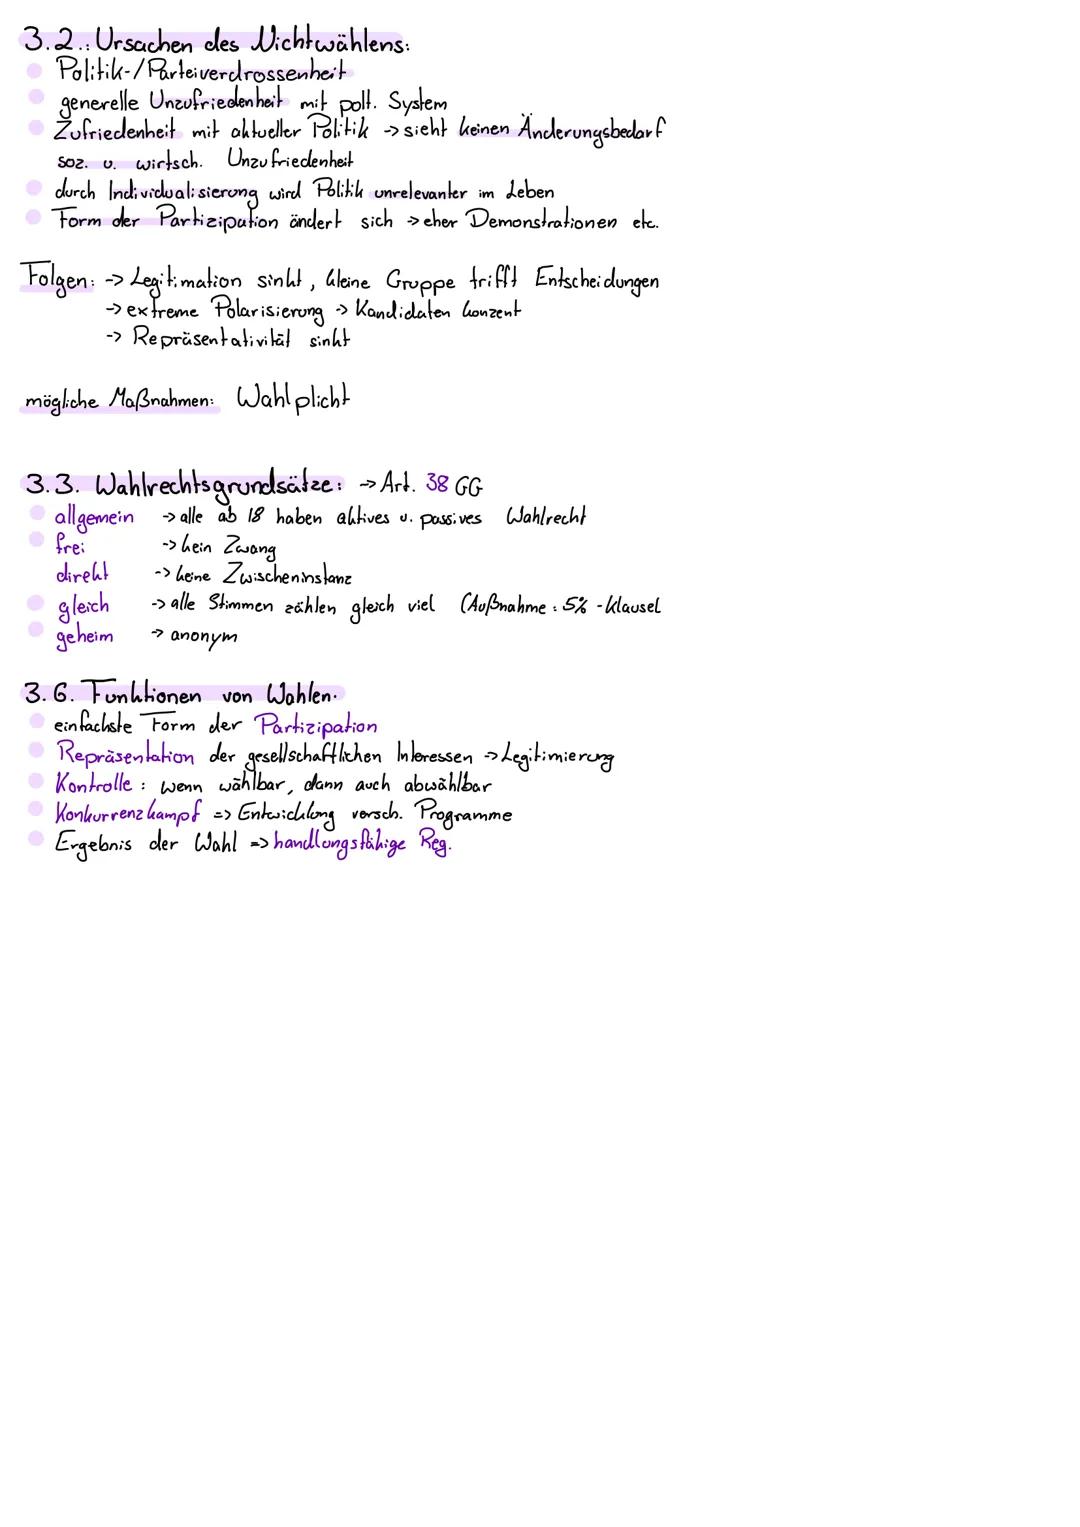 3.2.: Ursachen des Nichtwählens:
Politik-/Parteiverdrossenheit
generelle Unzufriedenheit mit polt. System
Zufriedenheit mit aktueller Politik -> sieht keinen Änderungsbedarf
soz. u. wirtsch. Unzufriedenheit
durch Individualisierung wird Politik unrelevanter im Leben
Form der Partizipation ändert sich -> eher Demonstrationen etc.
Folgen: -> Legitimation sinkt, kleine Gruppe trifft Entscheidungen
-> extreme Polarisierung -> Kandidaten konzent
-> Repräsentativität sinkt
mögliche Maßnahmen: Wahlplicht
3.3. Wahlrechtsgrundsätze: -> Art. 38 GG
allgemein -> alle ab 18 haben aktives u. passives Wahlrecht
frei -> kein Zwang
direkt -> keine Zwischeninstanz
gleich -> alle Stimmen zählen gleich viel (Außnahme: 5% -Klausel
geheim -> anonym
3.6. Funktionen von Wahlen.
einfachste Form der Partizipation
Repräsentation der gesellschaftlichen Interessen -> Legitimierung
Kontrolle: wenn wählbar, dann auch abwählbar
Konkurrenzkampf => Entwicklung versch. Programme
Ergebnis der Wahl => handlungsfähige Reg.